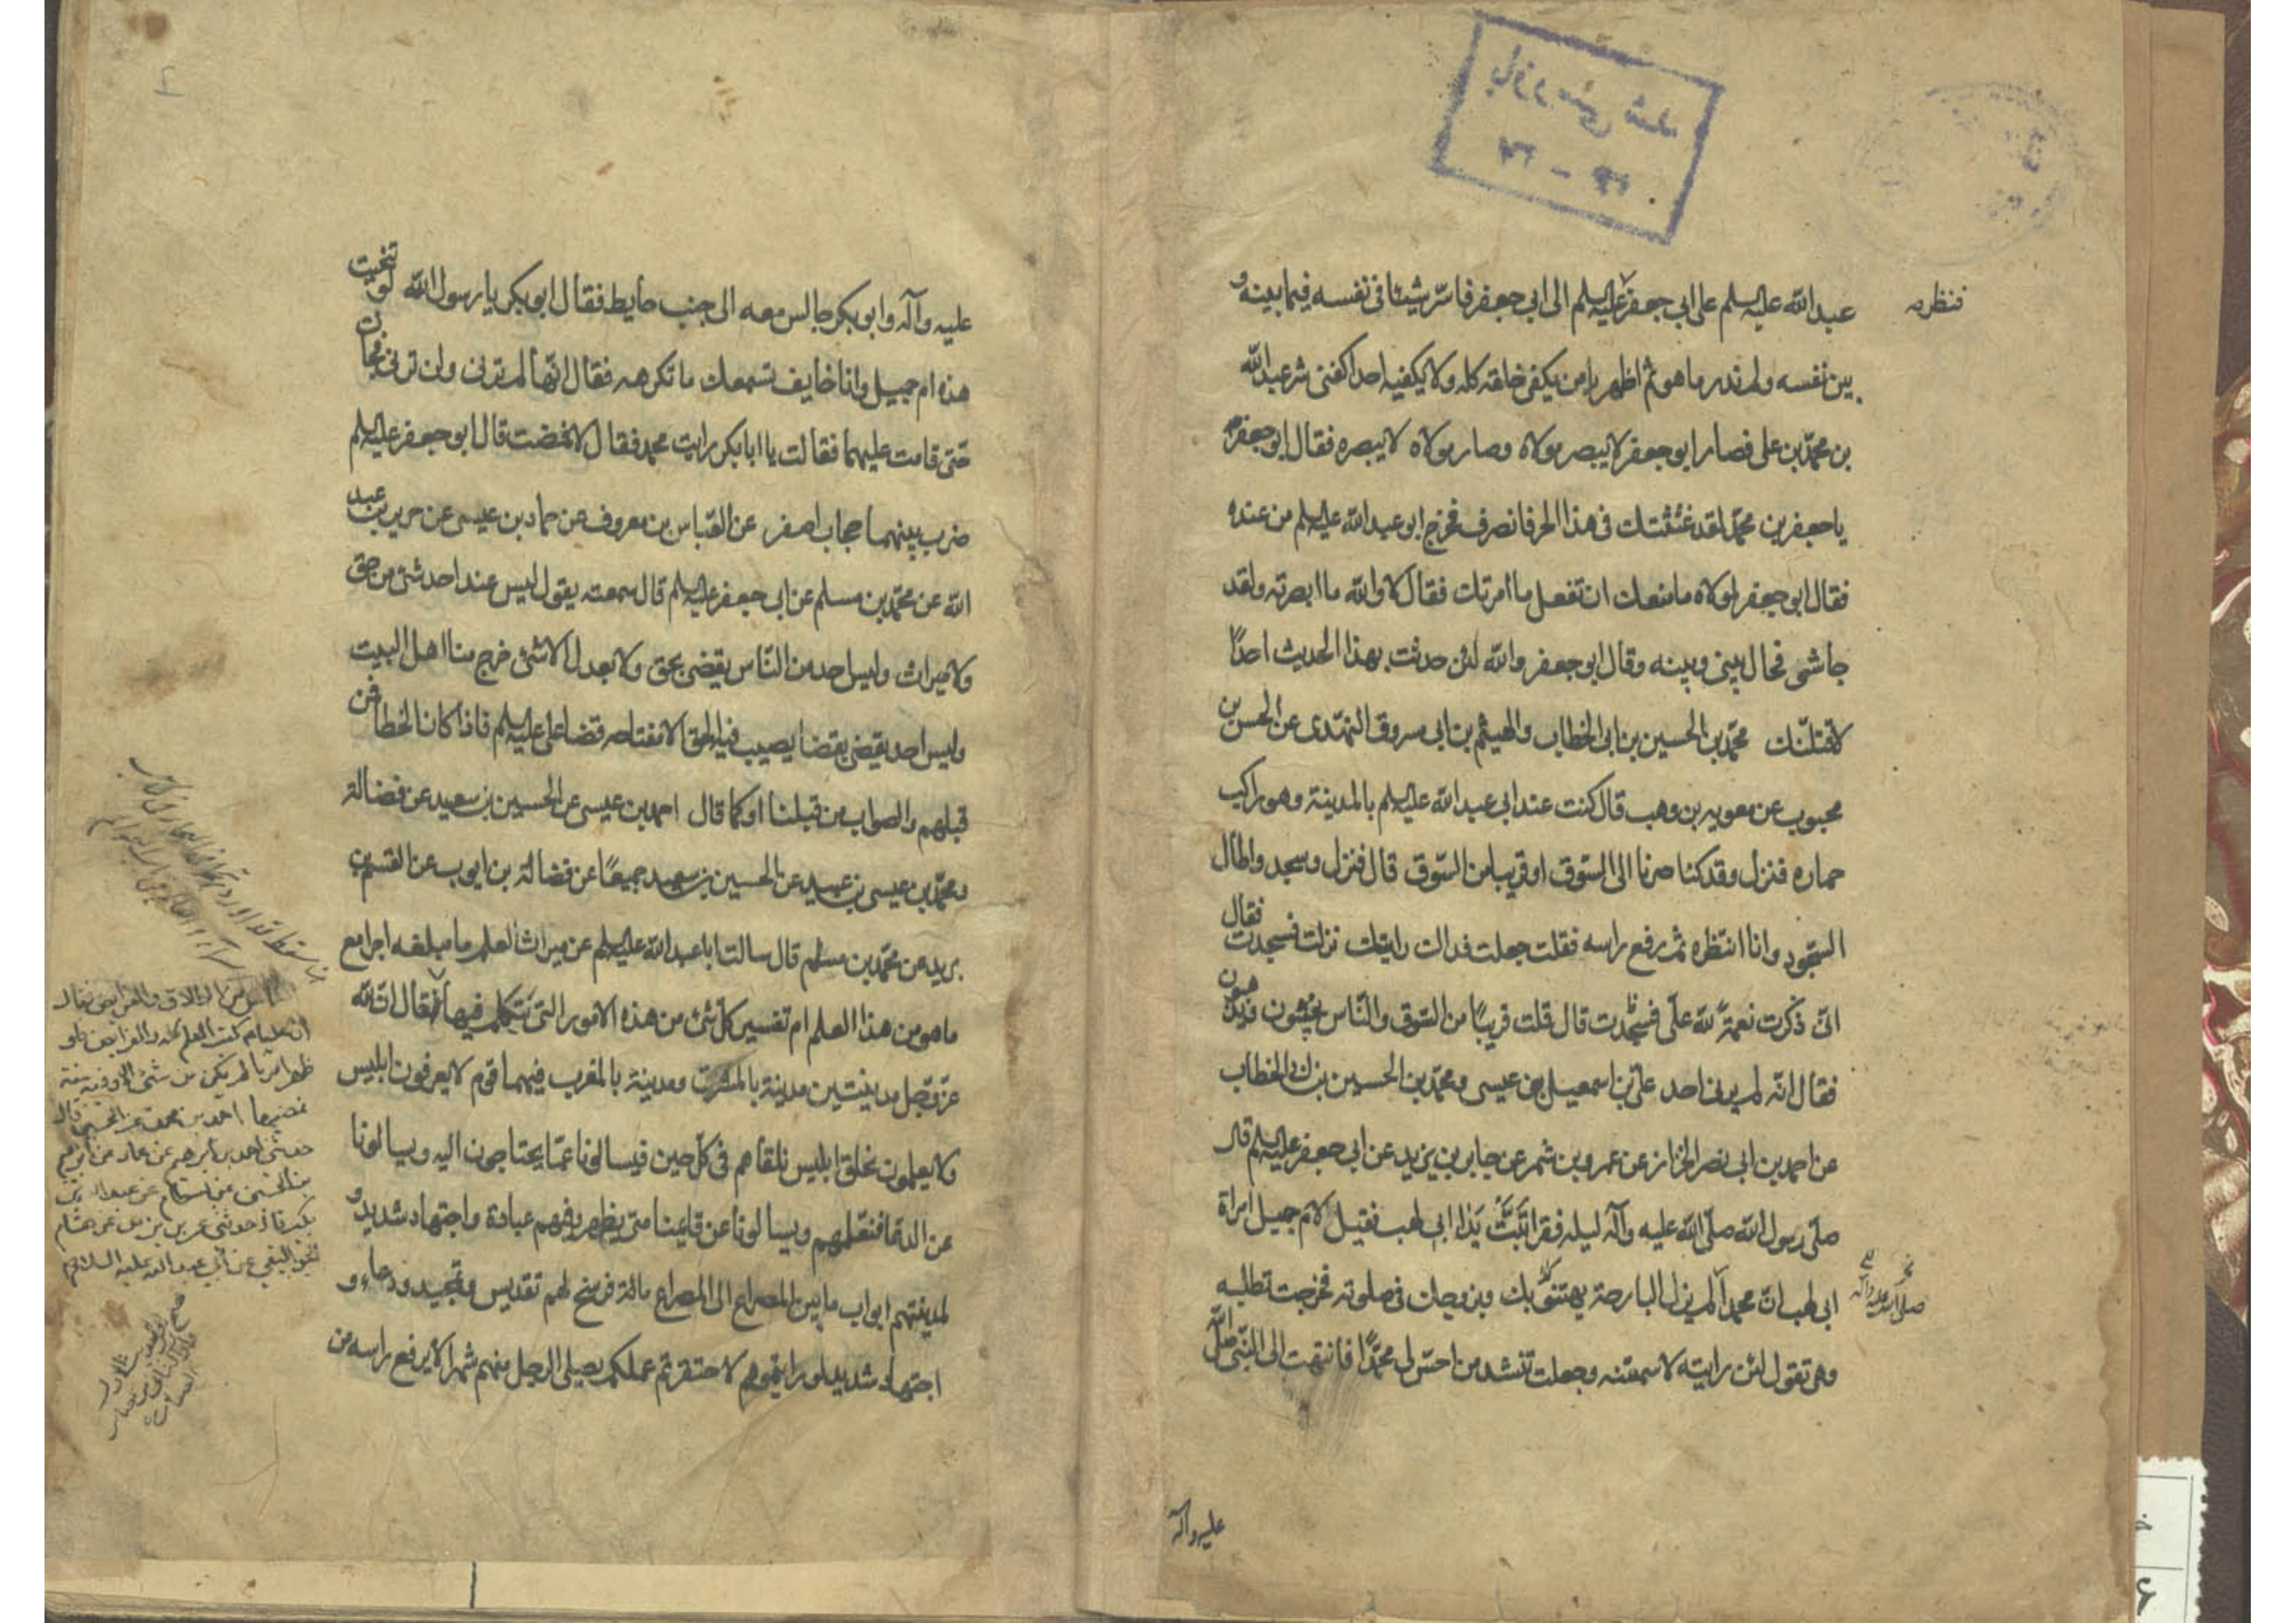 عبد الله عليه السلم على ابي جعفر عليه السلم الى ابي جعفر فاسر شيئا فى نفسه فيما بينه و
فنظر
بين نفسه ولم ندر ما هو ثم اظهر يا من يكفى خلقه كله ولا يكفيه احد اكفنى شر عبد الله
بن محمد بن على فصار ابو جعفر لا يبصر مولاه وصار مولاه لا يبصره فقال ابو جعفر
يا جعفر بن محمد لقد غثثتك فى هذا الحر فانصرف فخرج ابو عبد الله عليه السلم من عنده
فقال ابو جعفر لمولاه ما منعك ان تفعل ما امرتك فقال لا والله ما ابصرته ولقد
جاء شى فحال بينى وبينه وقال ابو جعفر والله لئن حدثت بهذا الحديث احدًا
لاقتلنّك محمّد بن الحسين بن ابى الخطاب والهيثم بن ابى مسروق النهدى عن الحسن بن
محبوب عن معويه بن وهب قال كنت عند ابى عبد الله عليه السلم بالمدينة وهو راكب
حماره فنزل وقد كنا صرنا الى السّوق او قريبا من السّوق قال فنزل وسجد واطال
السّجود وانا انتظره ثم رفع راسه فقلت جعلت فداك رايتك نزلت فسجدت فقال
انى ذكرت نعمة لله علىّ فسجدت قال قلت قريبًا من السّوق والنّاس يجيئون ويذهبون
فقال انّه لم يرنى احد علىّ بن اسمعيل بن عيسى ومحمّد بن الحسين بن ابى الخطاب
عن احمد بن ابى نصر الخزاز عن عمرو بن شمر عن جابر بن يزيد عن ابى جعفر عليه السلم قال
صلّى رسول الله صلّى الله عليه وآله ليله فقرا تَبَّتْ يَدَا ابى لهب فقيل لام جميل امراة
ابى لهب انّ محمدا لم يزل البارحة يهتف بك وبزوجك فى صلوته فخرجت تطلبه
صلى الله عليه وآله
وهى تقول لئن رايته لاسمعنه وجعلت تنشد من احس لى محمّدًا فانتهت الى النّبى صلّى الله
عليه وآله
عليه وآله وابو بكر جالس معه الى جنب حايط فقال ابو بكر يا رسول الله لو تنحيت
هذه ام جميل وانا خايف تسمعك ما تكرهه فقال انّها لم ترنى ولن ترنى فجات
حتى قامت عليهما فقالت يا ابا بكر رايت محمد فقال لا فمضت قال ابو جعفر عليه السلم
ضرب بينهما حجاب اصفر عن العبّاس بن معروف عن حماد بن عيسى عن حريز بن عبد
الله عن محمّد بن مسلم عن ابى جعفر عليه السلم قال سمعته يقول ليس عند احد شئ من حق
ولا ميراث وليس احد من النّاس يقضى بحق ولا بعدل الا شئ خرج منا اهل البيت
وليس احد يقضى بقضا يصيب فيه الحق الا مفتاحه قضا على عليه السلم فاذا كان الخطا فمن
قبلهم والصواب من قبلنا او كما قال احمد بن عيسى عن الحسين بن سعيد عن فضالة
ومحمّد بن عيسى بن عبيد عن الحسين بن سعيد جميعًا عن فضالة بن ايوب عن القسم بن
بريد عن محمّد بن مسلم قال سالت ابا عبد الله عليه السلم عن ميراث العلم ما مبلغه اجوامع
ما هو من هذا العلم ام تفسير كل شئ من هذه الامور التى نتكلم فيها فقال ان لله
عزّ وجل مدينتين مدينة بالمشرق ومدينة بالمغرب فيهما قوم لا يعرفون ابليس
ولا يعلمون بخلق ابليس نلقاهم فى كلّ حين فيسالونا عمّا يحتاجون اليه ويسالونا
عن الدعا فنعلمهم ويسالونا عن قايمنا متى يظهر وفيهم عبادة واجتهاد شديد و
لمدينتهم ابواب ما بين المصراع الى المصراع مائة فرسخ لهم تقديس وتمجيد ودعاء و
اجتهاد شديد لو رايتموهم لاحتقرتم عملكم يصلى الرجل منهم شهرا لا يرفع راسه من
من الطلاق والفرايض فقال
ان عليا كتب العلم كله والفرايض فلو
ظهر امرنا لم يكن من شئ الا وفيه سنة
نمضيها احمد بن محمد عن الحسين قال
حدثنى احمد بن ابراهيم عن عمار عن ابراهيم
بن الحسين عن بسطام عن عبد الله بن
بكير قال حدثنى عمر بن يزيد عن هشام
الجواليقى عن أبى عبد الله عليه السلام